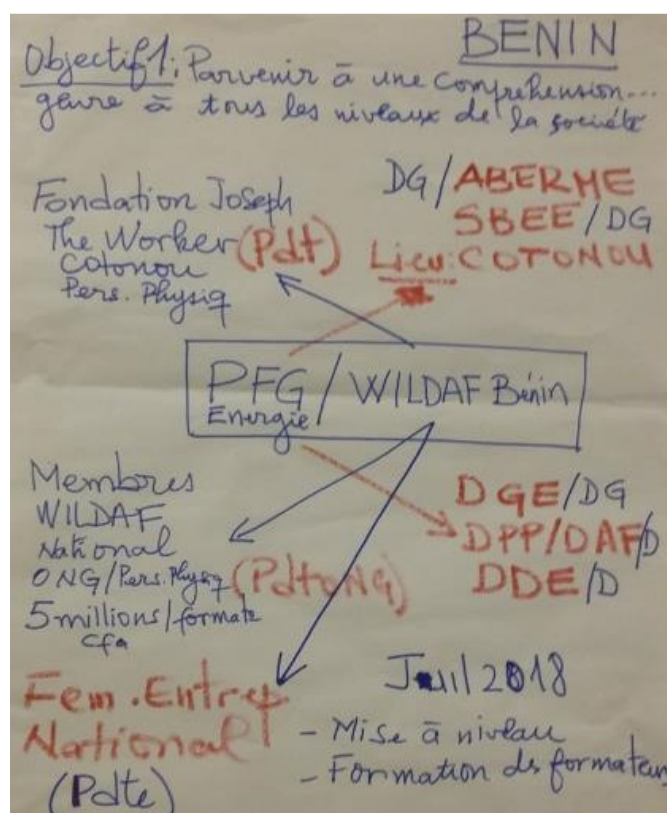 BENIN
Objectif1: Parvenir à une compréhension...
genre à tous les niveaux de la société
Fondation Joseph
The Worker (Pdt)
Cotonou
Pers. Physiq
DG/ABERME
SBEE/DG
Lieu: COTONOU
PFG / WILDAF Bénin
Energie
Membres
WILDAF
National
ONG/Pers. Physiq (PdtONG)
5 millions/formate
cfa
DGE/DG
DPP/DAF/D
DDE/D
Fem. Entrep
National
(Pdte)
Juil 2018
- Mise à niveau
- Formation de formateurs